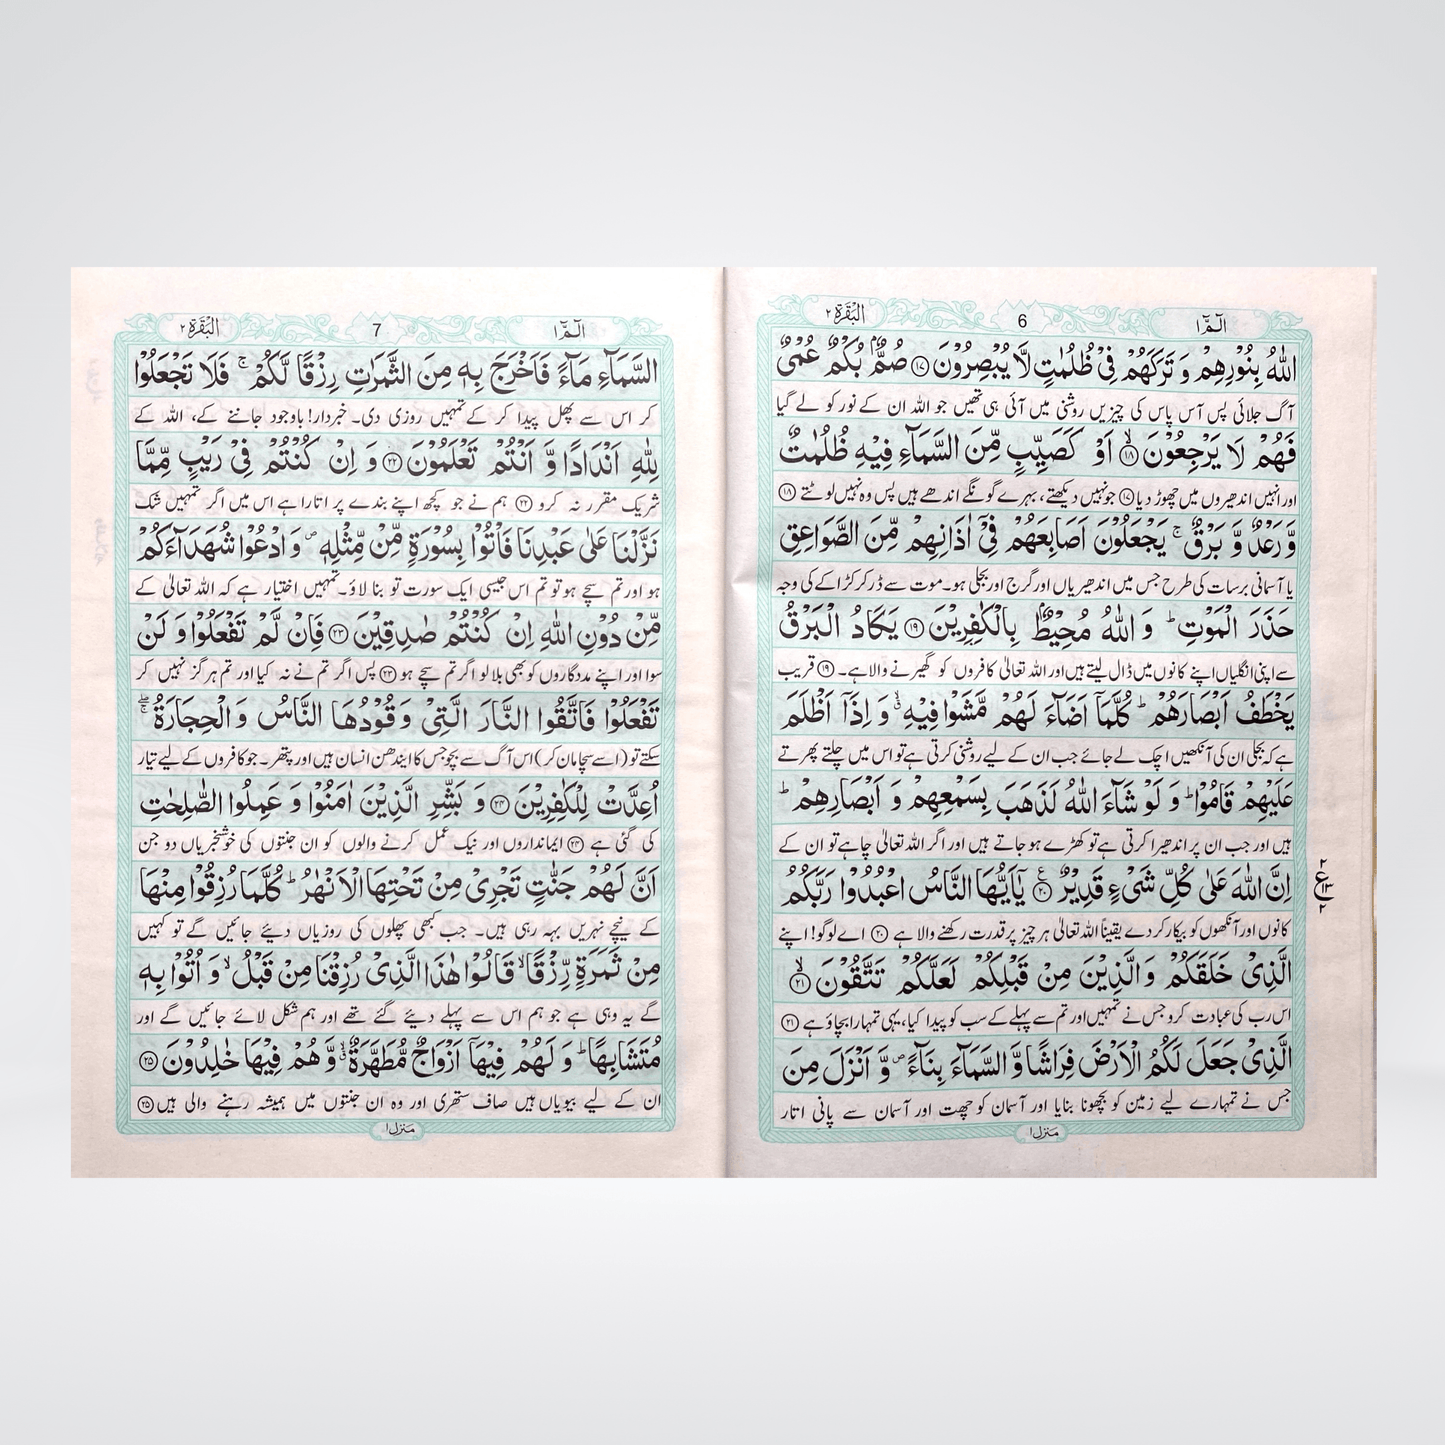 الٓمّٓ ۱
6
البقرۃ ۲
اللّٰهُ بِنُوْرِهِمْ وَ تَرَكَهُمْ فِیْ ظُلُمٰتٍ لَّا یُبْصِرُوْنَ ۝۱۷ صُمٌّۢ بُكْمٌ عُمْیٌ
آگ جلائی پس آس پاس کی چیزیں روشنی میں آئی ہی تھیں جو اللہ ان کے نور کو لے گیا
فَهُمْ لَا یَرْجِعُوْنَ ۝۱۸ اَوْ كَصَیِّبٍ مِّنَ السَّمَآءِ فِیْهِ ظُلُمٰتٌ
اور انہیں اندھیروں میں چھوڑ دیا ۝۱۷ جو نہیں دیکھتے، بہرے گونگے اندھے ہیں پس وہ نہیں لوٹتے ۝۱۸
وَّ رَعْدٌ وَّ بَرْقٌ ۚ یَجْعَلُوْنَ اَصَابِعَهُمْ فِیْۤ اٰذَانِهِمْ مِّنَ الصَّوَاعِقِ
یا آسمانی برسات کی طرح جس میں اندھیریاں اور گرج اور بجلی ہو۔ موت سے ڈر کر کڑاکے کی وجہ
حَذَرَ الْمَوْتِ ؕ وَ اللّٰهُ مُحِیْطٌۢ بِالْكٰفِرِیْنَ ۝۱۹ یَكَادُ الْبَرْقُ
سے اپنی انگلیاں اپنے کانوں میں ڈال لیتے ہیں اور اللہ تعالیٰ کافروں کو گھیرنے والا ہے۔ ۝۱۹ قریب
یَخْطَفُ اَبْصَارَهُمْ ؕ كُلَّمَاۤ اَضَآءَ لَهُمْ مَّشَوْا فِیْهِ ۙۗ وَ اِذَاۤ اَظْلَمَ
ہے کہ بجلی ان کی آنکھیں اچک لے جائے جب ان کے لیے روشنی کرتی ہے تو اس میں چلتے پھرتے
عَلَیْهِمْ قَامُوْا ؕ وَ لَوْ شَآءَ اللّٰهُ لَذَهَبَ بِسَمْعِهِمْ وَ اَبْصَارِهِمْ ؕ
ہیں اور جب ان پر اندھیرا کرتی ہے تو کھڑے ہو جاتے ہیں اور اگر اللہ تعالیٰ چاہے تو ان کے
اِنَّ اللّٰهَ عَلٰی كُلِّ شَیْءٍ قَدِیْرٌ ۝۲۰ یٰۤاَیُّهَا النَّاسُ اعْبُدُوْا رَبَّكُمُ
کانوں اور آنکھوں کو بیکار کر دے یقیناً اللہ تعالیٰ ہر چیز پر قدرت رکھنے والا ہے ۝۲۰ اے لوگو! اپنے
الَّذِیْ خَلَقَكُمْ وَ الَّذِیْنَ مِنْ قَبْلِكُمْ لَعَلَّكُمْ تَتَّقُوْنَ ۝۲۱
اس رب کی عبادت کرو جس نے تمہیں اور تم سے پہلے کے سب کو پیدا کیا، یہی تمہارا بچاؤ ہے ۝۲۱
الَّذِیْ جَعَلَ لَكُمُ الْاَرْضَ فِرَاشًا وَّ السَّمَآءَ بِنَآءً ۪ وَّ اَنْزَلَ مِنَ
جس نے تمہارے لیے زمین کو بچھونا بنایا اور آسمان کو چھت اور آسمان سے پانی اتار
منزل ۱
۲
ع
۱۳
۲
الٓمّٓ ۱
7
البقرۃ ۲
السَّمَآءِ مَآءً فَاَخْرَجَ بِهٖ مِنَ الثَّمَرٰتِ رِزْقًا لَّكُمْ ۚ فَلَا تَجْعَلُوْا
کر اس سے پھل پیدا کر کے تمہیں روزی دی۔ خبردار! باوجود جاننے کے، اللہ کے
لِلّٰهِ اَنْدَادًا وَّ اَنْتُمْ تَعْلَمُوْنَ ۝۲۲ وَ اِنْ كُنْتُمْ فِیْ رَیْبٍ مِّمَّا
شریک مقرر نہ کرو ۝۲۲ ہم نے جو کچھ اپنے بندے پر اتارا ہے اس میں اگر تمہیں شک
نَزَّلْنَا عَلٰی عَبْدِنَا فَاْتُوْا بِسُوْرَةٍ مِّنْ مِّثْلِهٖ ۪ وَ ادْعُوْا شُهَدَآءَكُمْ
ہو اور تم سچے ہو تو تم اس جیسی ایک سورت تو بنا لاؤ۔ تمہیں اختیار ہے کہ اللہ تعالیٰ کے
مِّنْ دُوْنِ اللّٰهِ اِنْ كُنْتُمْ صٰدِقِیْنَ ۝۲۳ فَاِنْ لَّمْ تَفْعَلُوْا وَ لَنْ
سوا اور اپنے مددگاروں کو بھی بلا لو اگر تم سچے ہو ۝۲۳ پس اگر تم نے نہ کیا اور تم ہرگز نہیں کر
تَفْعَلُوْا فَاتَّقُوا النَّارَ الَّتِیْ وَ قُوْدُهَا النَّاسُ وَ الْحِجَارَةُ ۖۚ
سکتے تو (اسے سچا مان کر) اس آگ سے بچو جس کا ایندھن انسان ہیں اور پتھر۔ جو کافروں کے لیے تیار
اُعِدَّتْ لِلْكٰفِرِیْنَ ۝۲۴ وَ بَشِّرِ الَّذِیْنَ اٰمَنُوْا وَ عَمِلُوا الصّٰلِحٰتِ
کی گئی ہے ۝۲۴ ایمانداروں اور نیک عمل کرنے والوں کو ان جنتوں کی خوشخبریاں دو جن
اَنَّ لَهُمْ جَنّٰتٍ تَجْرِیْ مِنْ تَحْتِهَا الْاَنْهٰرُ ؕ كُلَّمَا رُزِقُوْا مِنْهَا
کے نیچے نہریں بہہ رہی ہیں۔ جب کبھی پھلوں کی روزیاں دیئے جائیں گے تو کہیں
مِنْ ثَمَرَةٍ رِّزْقًا ۙ قَالُوْا هٰذَا الَّذِیْ رُزِقْنَا مِنْ قَبْلُ ۙ وَ اُتُوْا بِهٖ
گے یہ وہی ہے جو ہم اس سے پہلے دیئے گئے تھے اور ہم شکل لائے جائیں گے اور
مُتَشَابِهًا ؕ وَ لَهُمْ فِیْهَاۤ اَزْوَاجٌ مُّطَهَّرَةٌ ۙۗ وَّ هُمْ فِیْهَا خٰلِدُوْنَ ۝۲۵
ان کے لیے بیویاں ہیں صاف ستھری اور وہ ان جنتوں میں ہمیشہ رہنے والی ہیں ۝۲۵
منزل ۱